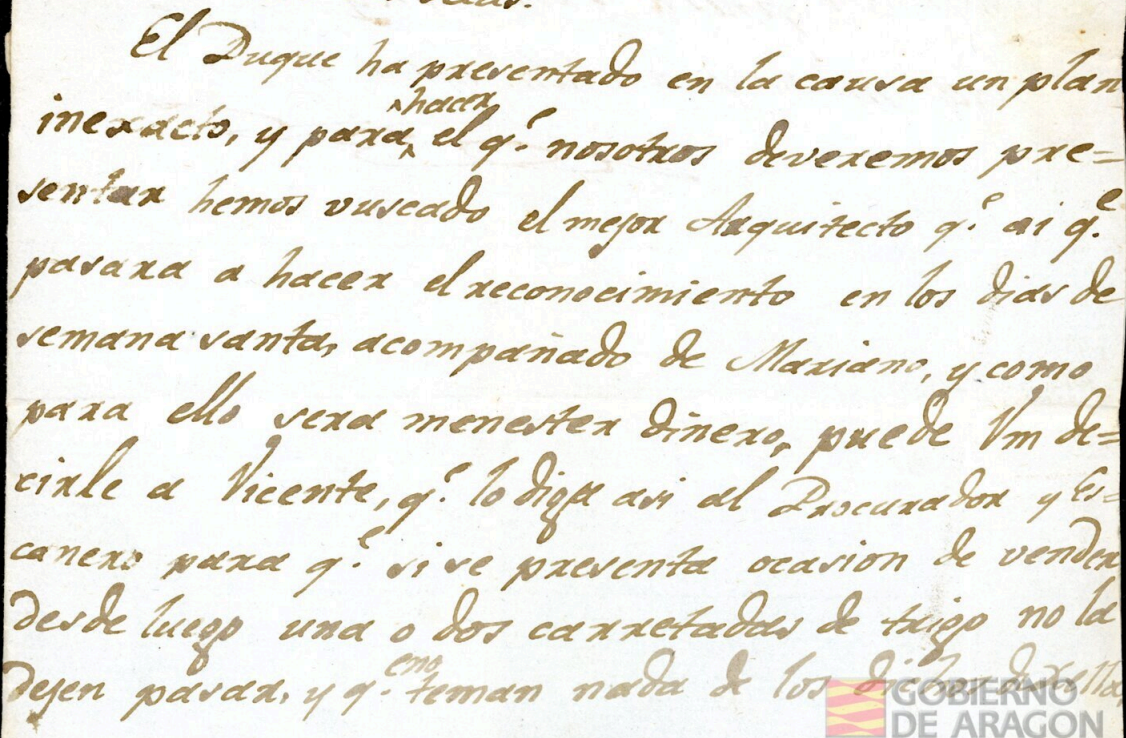 El Duque ha presentado en la causa un plan
inexacto, y para hacer el q.e nosotros deveremos pre=
sentar hemos vuscado el mejor Arquitecto q.e ai q.e
pasara a hacer el reconocimiento en los dias de
semana santa, acompañado de Mariano, y como
para ello sera menester dinero, puede Vm de=
cirle a Vicente, q.e lo diga asi al Procurador y Es=
canero para q.e si se presenta ocasion de vender
desde luego una o dos carretadas de trigo no la
dejen pasar, y q.e no teman nada de los dichos de
GOBIERNO
DE ARAGON